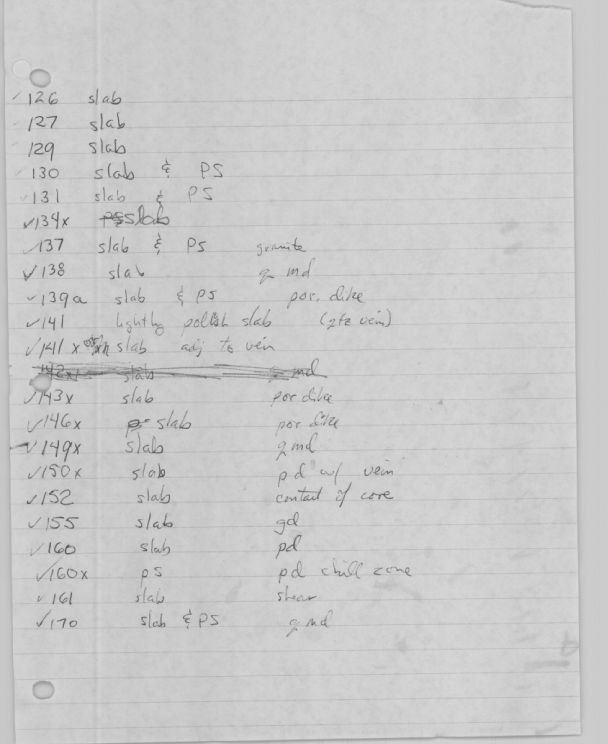 ✓ 126 slab
✓ 127 slab
129 slab
130 slab & PS
✓ 131 slab & PS
✓ 134x slab
✓ 137 slab & PS granite
✓ 138 slab q md
✓ 139a slab & PS por. dike
✓ 141 lightly polish slab (qtz vein)
✓ 141 x slab adj to vein
142x slab q md
✓ 143x slab por dike
✓ 146x slab por dike
✓ 149x slab q md
✓ 150x slab pd w/ vein
✓ 152 slab contact of core
✓ 155 slab gd
✓ 160 slab pd
✓ 160x PS pd chill zone
✓ 161 slab shear
✓ 170 slab & PS q md